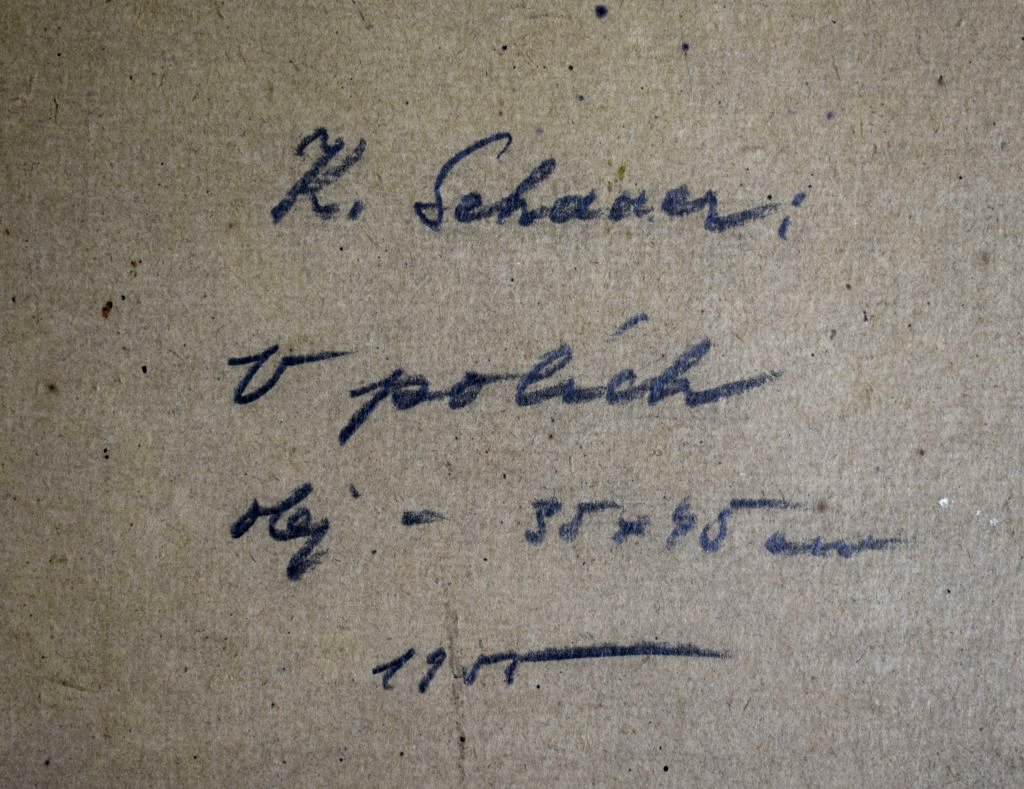 K. Schauer:
V polích
olej - 35 x 45 cm
1955